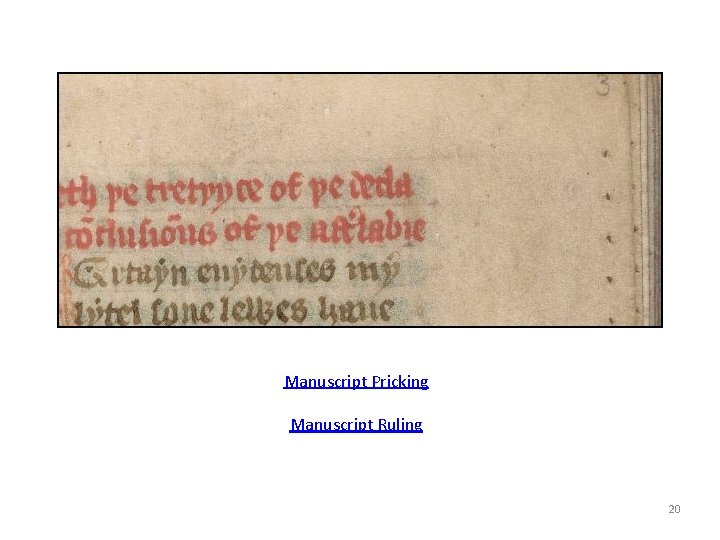 3
eth þe tretyyce of þe decla
cōclusiōns of þe astrelabie
Certaẏn euẏdenses mẏ
lẏtel sone lewes haue
Manuscript Pricking
Manuscript Ruling
20